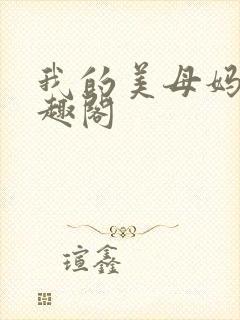 我的美母妈
趣阁
瑄鑫